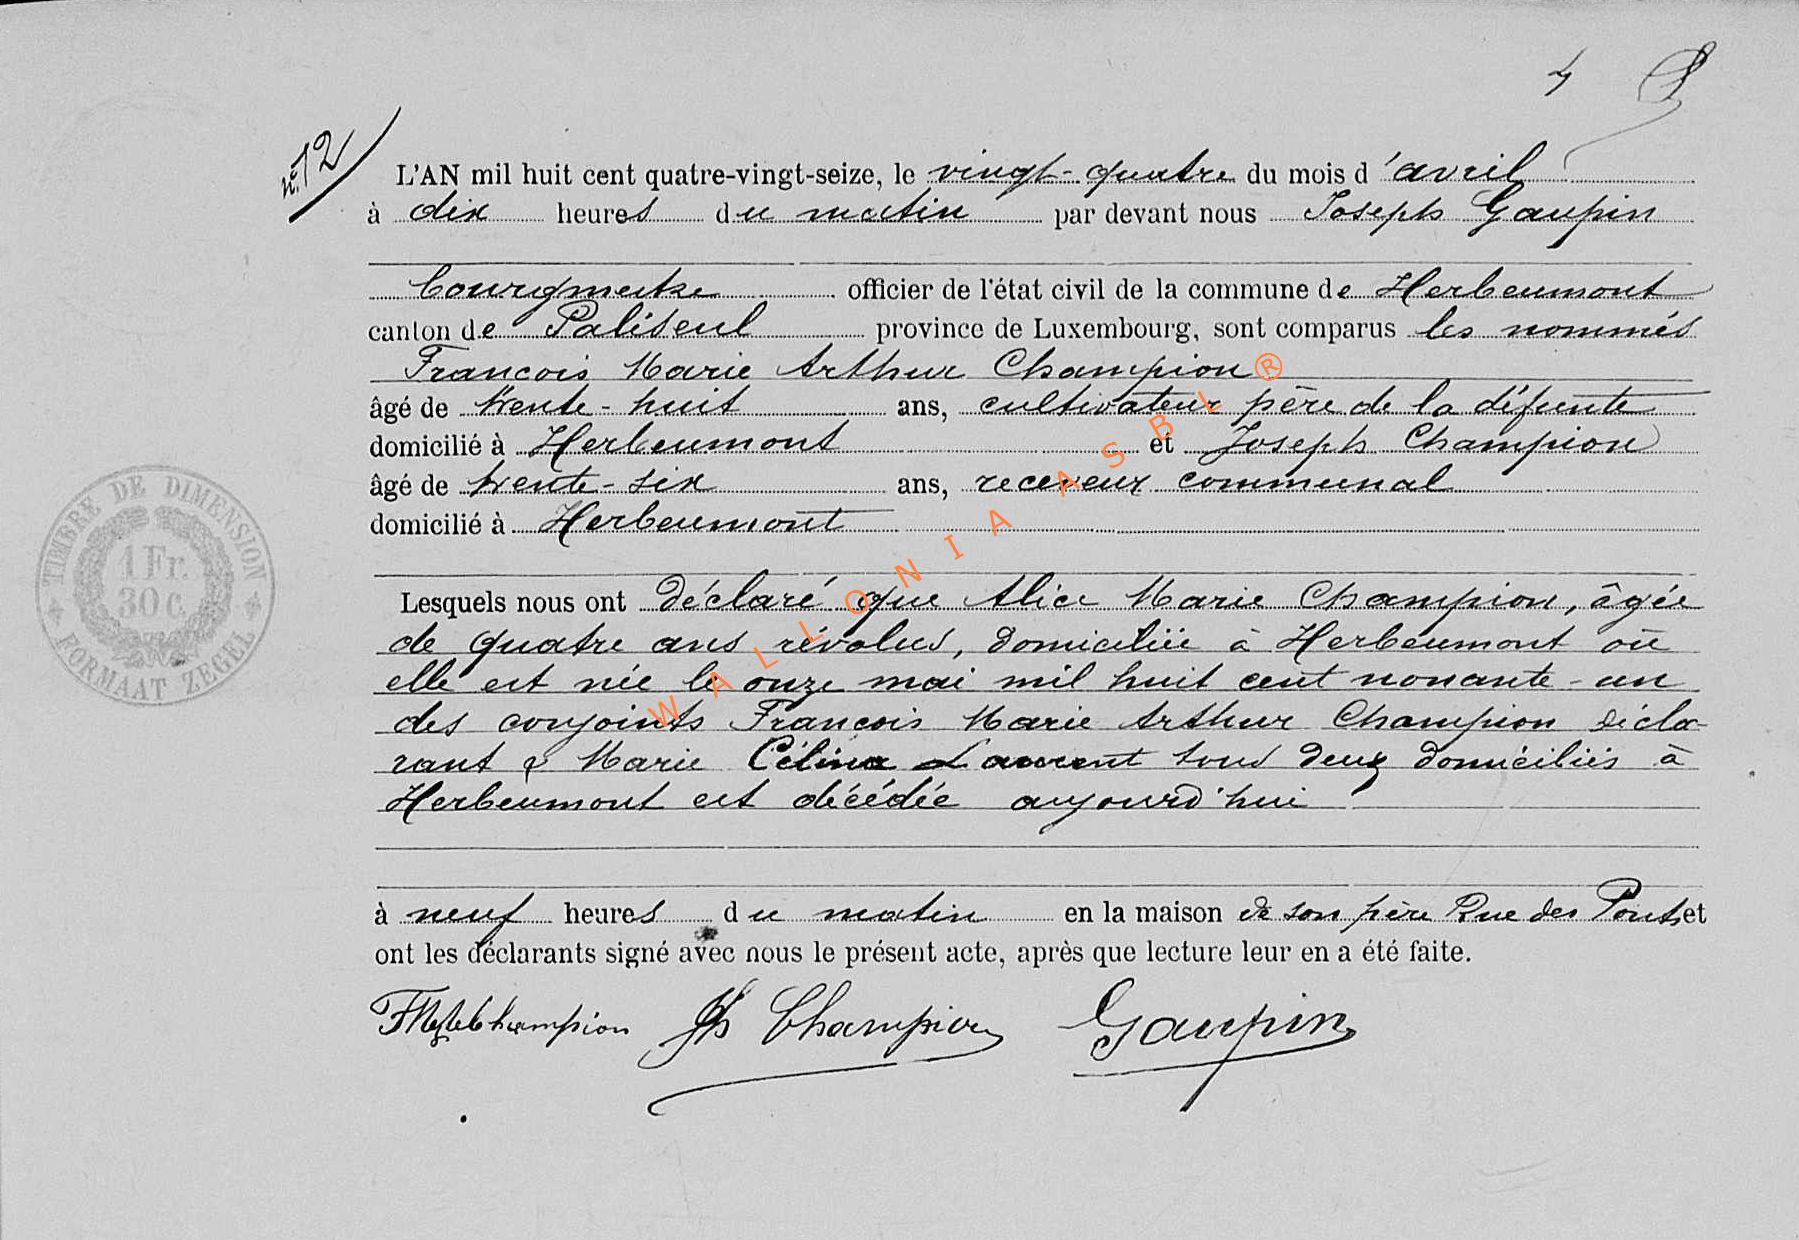 4
n° 12
L'AN mil huit cent quatre-vingt-seize, le vingt-quatre du mois d'avril
à dix heures du matin par devant nous Joseph Gaupin
bourgmestre officier de l'état civil de la commune de Herbeumont
canton de Paliseul province de Luxembourg, sont comparus les nommés
François Marie Arthur Champion
âgé de trente-huit ans, cultivateur père de la défunte
domicilié à Herbeumont et Joseph Champion
âgé de trente-six ans, receveur communal
domicilié à Herbeumont
Lesquels nous ont déclaré que Alice Marie Champion, âgée
de quatre ans révolus, domiciliée à Herbeumont où
elle est née le onze mai mil huit cent nonante-un
des conjoints François Marie Arthur Champion décla-
rant & Marie Célina Laurent tous deux domiciliés à
Herbeumont est décédée aujourd'hui
à neuf heures du matin en la maison de son père Rue des Ponts et
ont les déclarants signé avec nous le présent acte, après que lecture leur en a été faite.
Champion Jh Champion Gaupin
TIMBRE DE DIMENSION
1 Fr.
30 c.
FORMAAT ZEGEL
WALLONIA ASBL ®